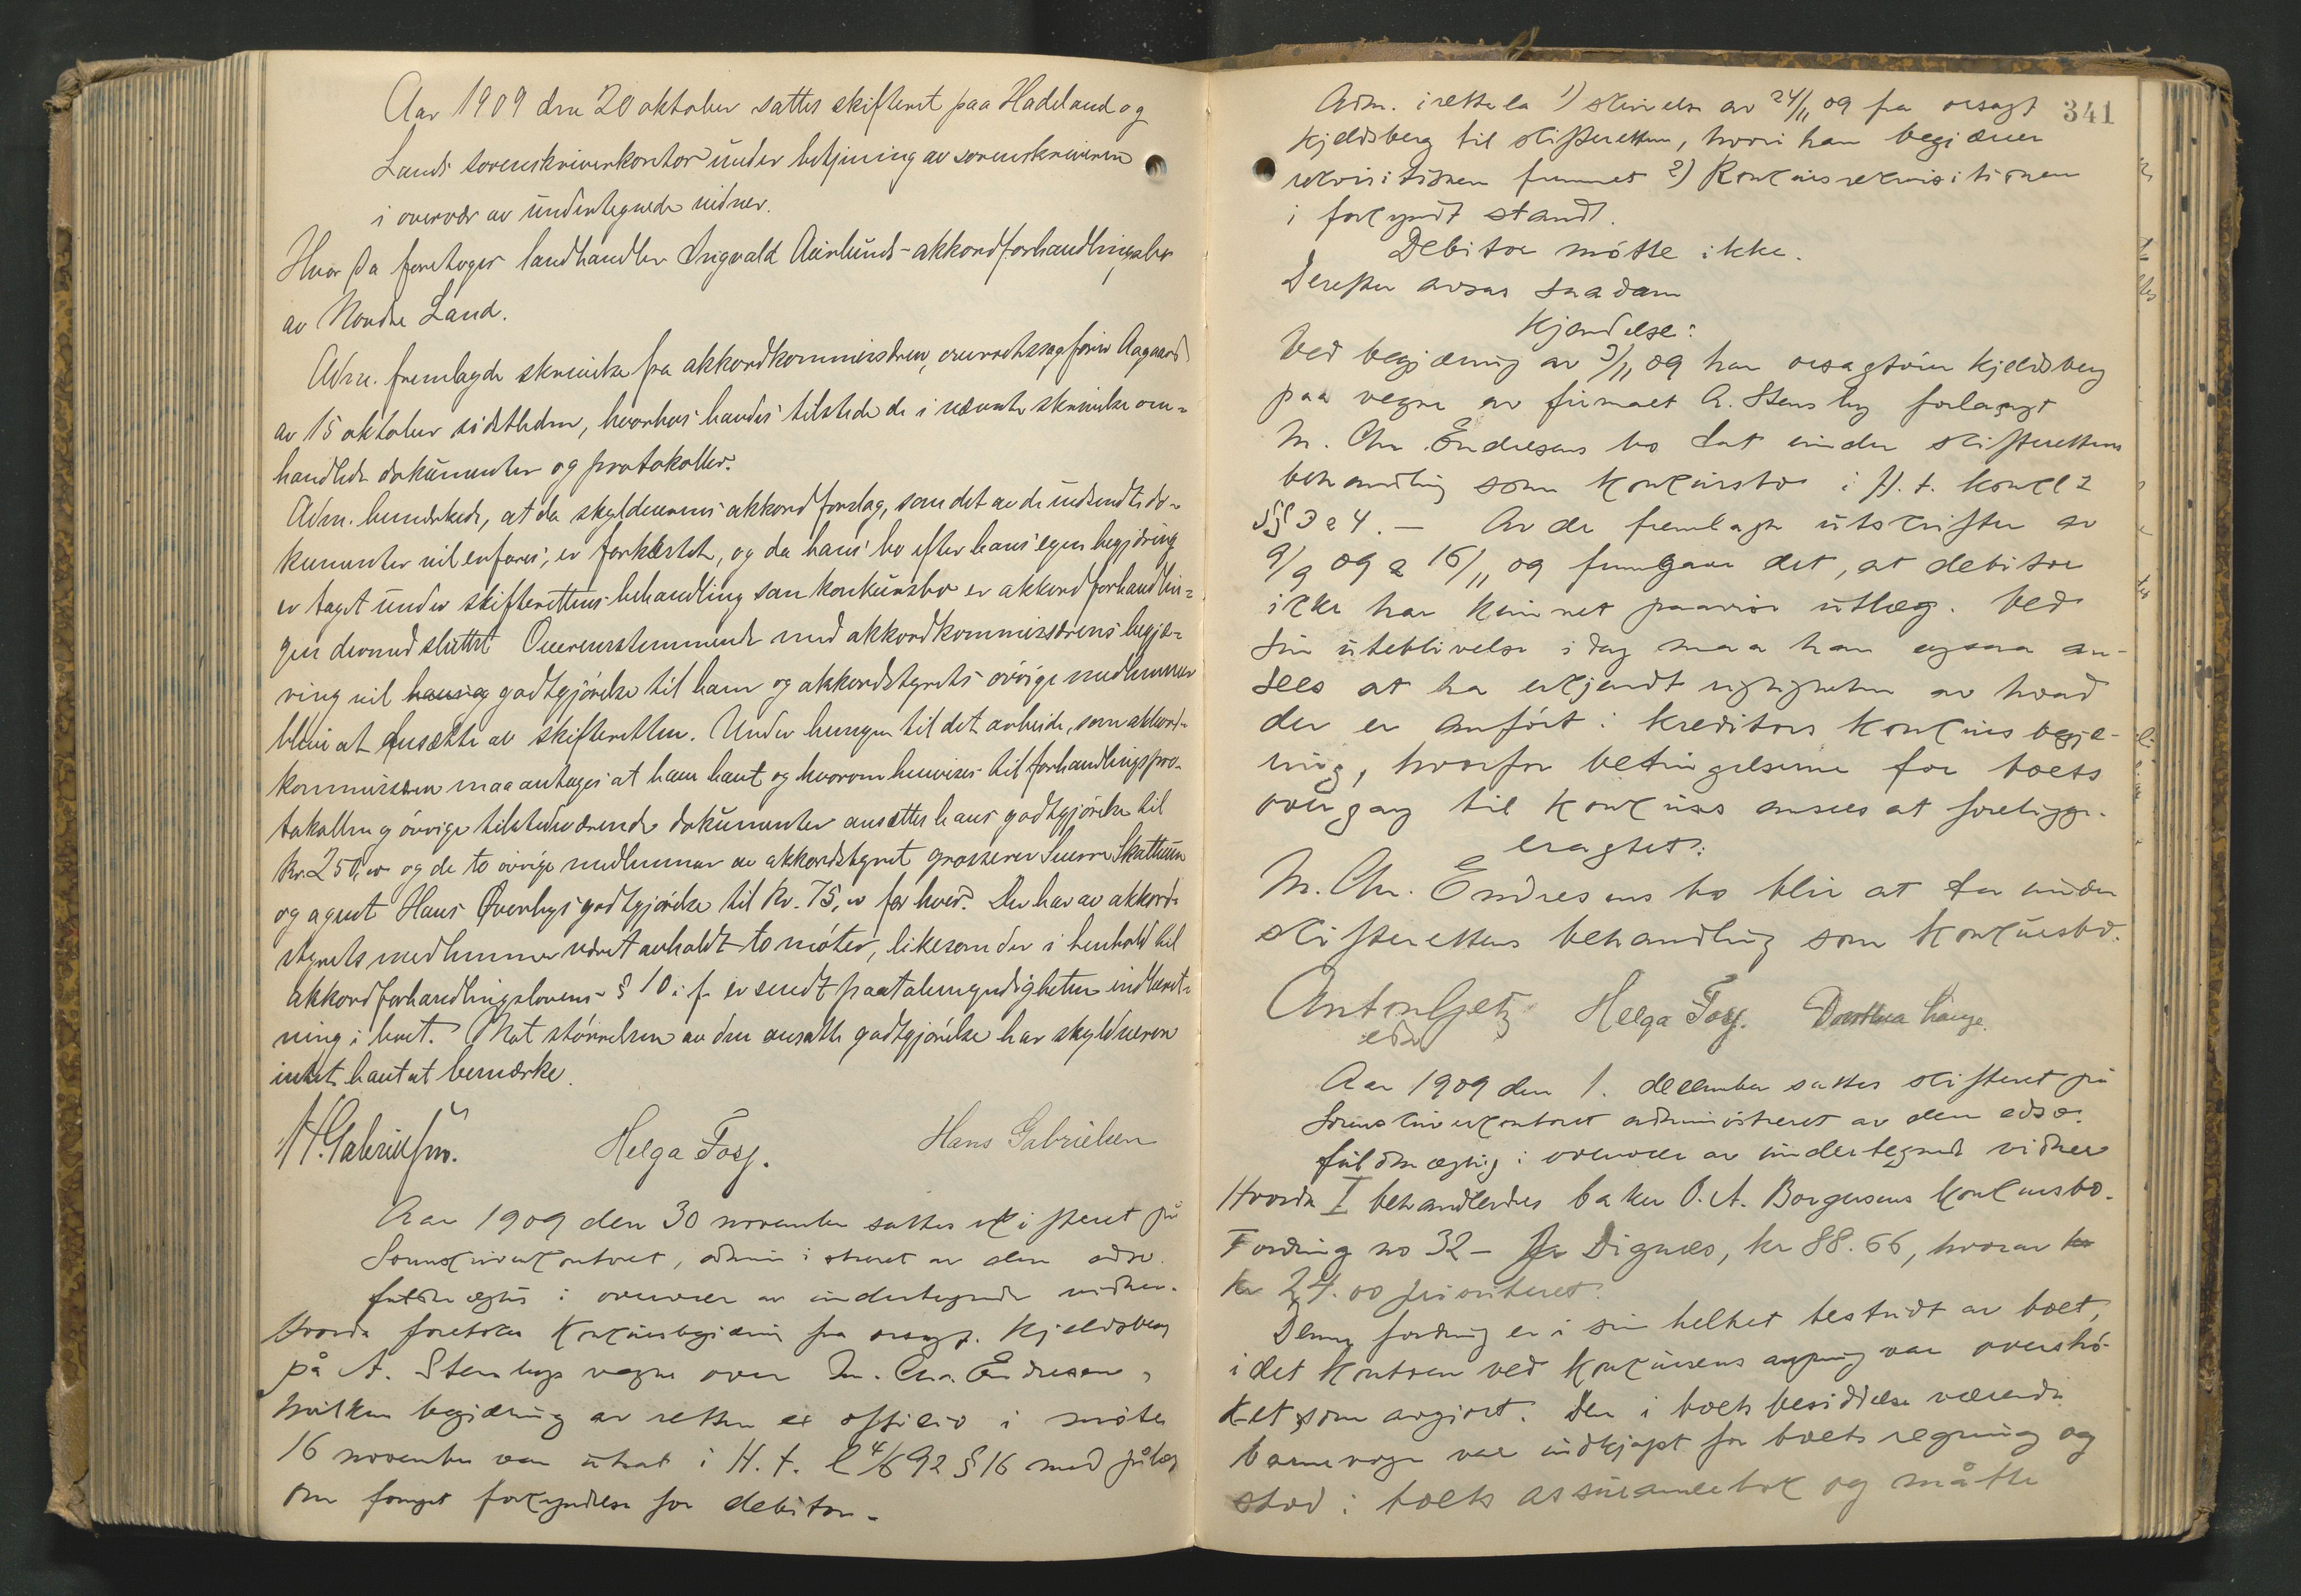 Aar 1909 den 20 oktober sattes skifteret paa Hadeland og
Lands sorenskriverkontor under betjening av sorenskriveren
i overvær av undertegnede vidner.
Hvor da foretoges landhandler Ingvald Aurlunds akkordforhandlingsbo
av Nordre Land.
Adm. fremlagde skrivelse fra akkordkommissæren, overretssagfører Aagaard
av 15 oktober sidstleden, hvorhos havdes tilstede de i nævnte skrivelse om-
handlede dokumenter og protokoller.
Adm. bemerkede, at da skyldnerens akkordforslag, som det av de indsendte do-
kumenter vil erfares, er forkastet, og da hans bo efter hans egen begjæring
er taget under skifterettens behandling som konkursbo er akkordforhandlin-
gen dermed sluttet. Overensstemmende med akkordkommissærens begjæ-
ring vil godtgjørelse til ham og akkordstyrets øvrige medlemmer
blive at ansætte av skifteretten. Under hensyn til det arbeide, som akkord-
kommissæren maa antages at have havt og hvorom henvises til forhandlingspro-
tokollen og øvrige tilstedeværende dokumenter ansættes hans godtgjørelse til
kr. 250,00 og de to øvrige medlemmer av akkordstyret grosserer Sverre Skattum
og agent Hans Øverbys godtgjørelse til kr. 75,00 for hver. Der har av akkord-
styrets medlemmer været avholdt to møter, likesom der i henhold til
akkordforhandlingslovens § 10 i.f. er sendt paatalemyndigheten indberet-
ning i boet. Mot størrelsen av den ansatte godtgjørelse har skyldneren
intet havt at bemærke.
H. Gabrielsen. Helga Fosj. Hans Gabrielsen
Aar 1909 den 30 november sattes skifteret på
Sorenskriverkontoret, administreret av den edsv.
fuldmægtig i overvær av undertegnede vidner.
Hvorda foretokes konkursbegjæring fra orsagf. Kjeldsberg
på A. Stensbys vegne over M. Chr. Endresen,
hvilken begjæring av retten ex officio i møte
16 november var utsat i H. t. l 4/6 92 § 16 med pålæg
om fornyet forkyndelse for debitor.
341
Adm. irettela 1) skrivelse av 24/11 09 fra orsagf
Kjeldsberg til skifteretten, hvori han begjærer
rekvisitionen fremmet 2) Konkursrekvisitionen
i forkyndt stand.
Debitor møtte ikke.
Derefter avsas saadan
Kjendelse:
Ved begjæring av 3/11 09 har orsagfører Kjeldsberg
paa vegne av firmaet A. Stensby forlangt
M. Chr Endresens bo tat under skifterettens
behandling som konkursbo i H. t. konkl
§§ 3 & 4. — Av de fremlagte utskrifter av
9/9 09 & 16/11 09 fremgaar det, at debitor
ikke har kunnet paavise utlæg. Ved
sin uteblivelse idag maa han ogsaa an-
sees at ha erkjendt rigtigheten av hvad
der er anført i kreditors konkursbegjæ-
ring, hvorfor betingelserne for boets
overgang til konkurs ansees at foreligge.
eragtet:
M. Chr. Endresens bo blir at ta under
skifterettens behandling som konkursbo.
Anton Getz Helga Fosj. Dorothea Lange.
edsv
Aar 1909 den 1. december sattes skifteret på
Sorenskriverkontoret administreret av den edsv.
fuldmægtig i overvær av undertegnede vidner
Hvorda I behandledes baker O. A. Borgersens konkursbo.
Fordring no 32 — fra Dignæs, kr 88.66, hvorav
kr 24.00 prioriteret.
Denne fordring er i sin helhet bestridt av boet,
idet kontoen ved konkursens aapning var overstrø-
ket som avgjort. Den i boets besiddelse værende
barnevogn var indkjøpt for boets regning og
stod i boets assurancebok og måtte